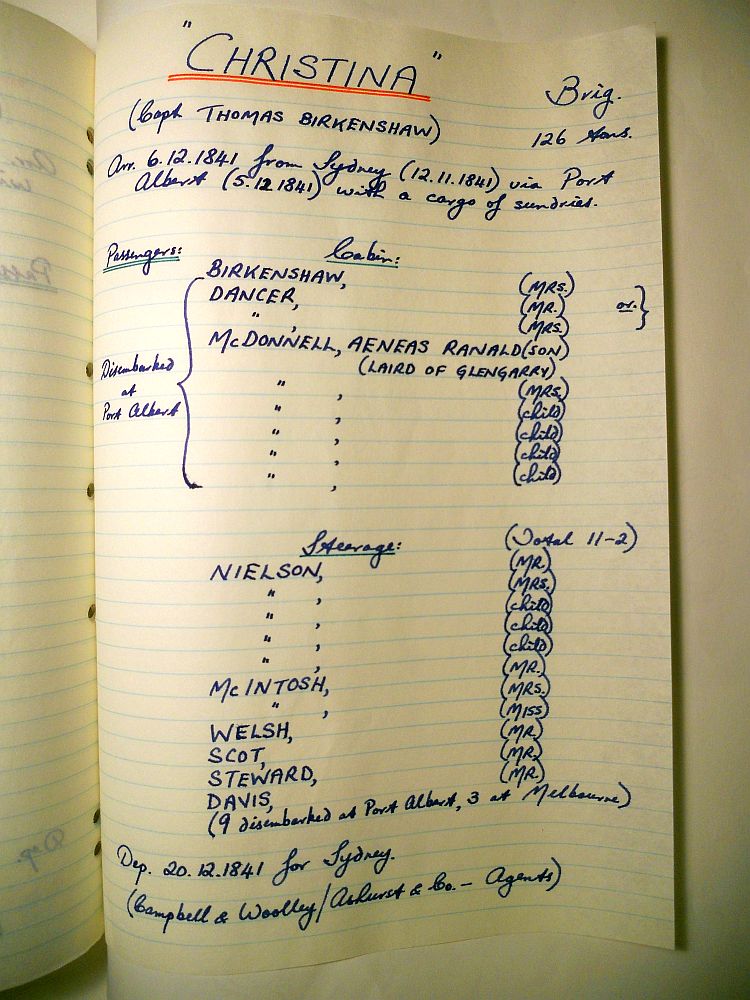 "CHRISTINA"
Brig.
(Capt THOMAS BIRKENSHAW)
126 tons.
Arr. 6.12.1841 from Sydney (12.11.1841) via Port
Albert (5.12.1841) with a cargo of sundries.
Passengers:
Cabin:
BIRKENSHAW, (MRS.)
DANCER, (MR.) or. }
" , (MRS.)
McDONNELL, AENEAS RANALD(SON)
(LAIRD OF GLENGARRY)
Disembarked
at
Port Albert
" , (MRS.)
" , (child)
" , (child)
" , (child)
" , (child)
Steerage: (Total 11-2)
NIELSON, (MR.)
" , (MRS.)
" , (child)
" , (child)
" , (child)
McINTOSH, (MR.)
" , (MRS.)
WELSH, (MISS)
SCOT, (MR.)
STEWARD, (MR.)
DAVIS, (MR.)
(9 disembarked at Port Albert, 3 at Melbourne)
Dep. 20.12.1841 for Sydney.
(Campbell & Woolley/Ashurst & Co. - Agents)